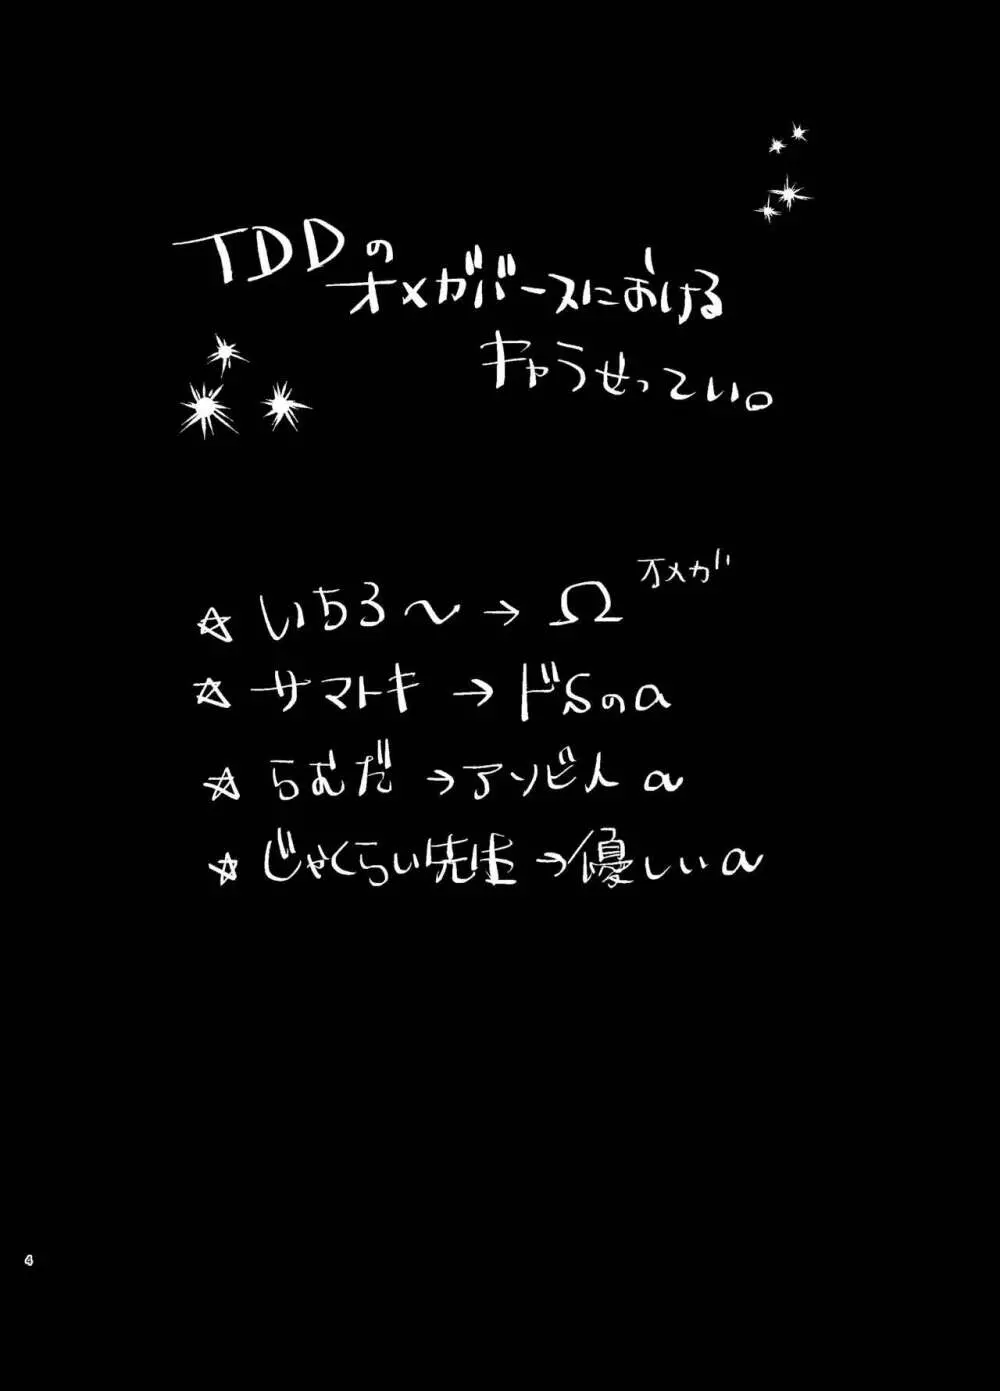 TDDの
オメガバースにおける
キャラせってい。
オメガ
☆いちろ～→Ω
☆サマトキ→ドSのα
☆らむだ→アソビ人α
☆じゃくらい先生→優しいα
4